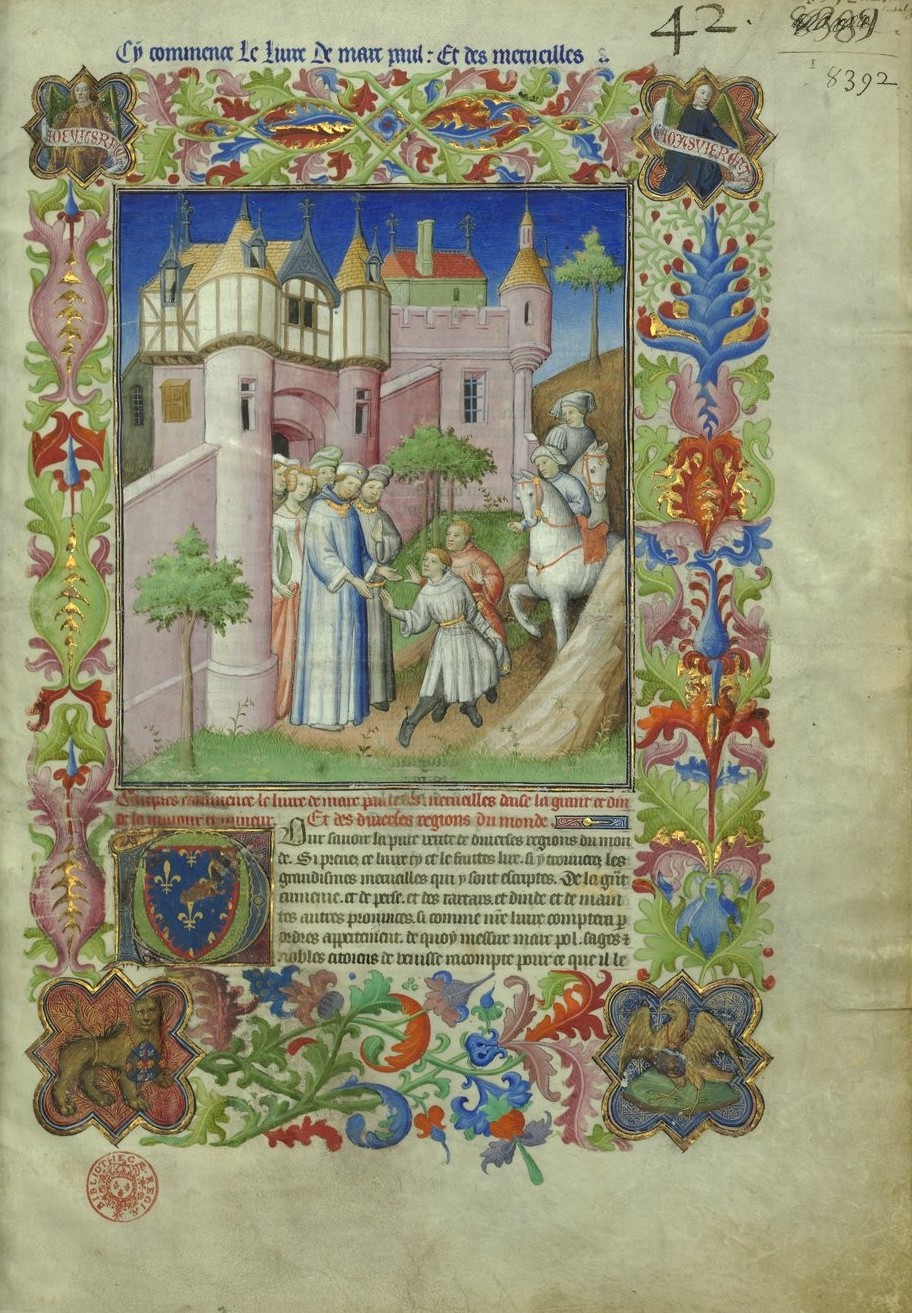 42.
8392
Cy commence Le Liure De marc paul : Et des merueilles
Cy apres commence le liure de marc paul et des merueilles daise la grant et din
de la maiour et mineur. Et des diuerses regions du monde
Pour sauoir la pure verite de diuerses regions du mon
de. Si prenez ce liure cy et le faittes lire. si y trouuerez les
grandismes merueilles qui y sont escriptes. De la grãt
ermenie. et de perse. et des tartars. et dinde et de main
tes autres prouinces. si comme nr̃e liure comptera p
ordres appertement. de quoy messire marc pol. sages ⁊
nobles citoiens de venisse racompte pour ce que il le
BIBLIOTHECÆ REGIÆ